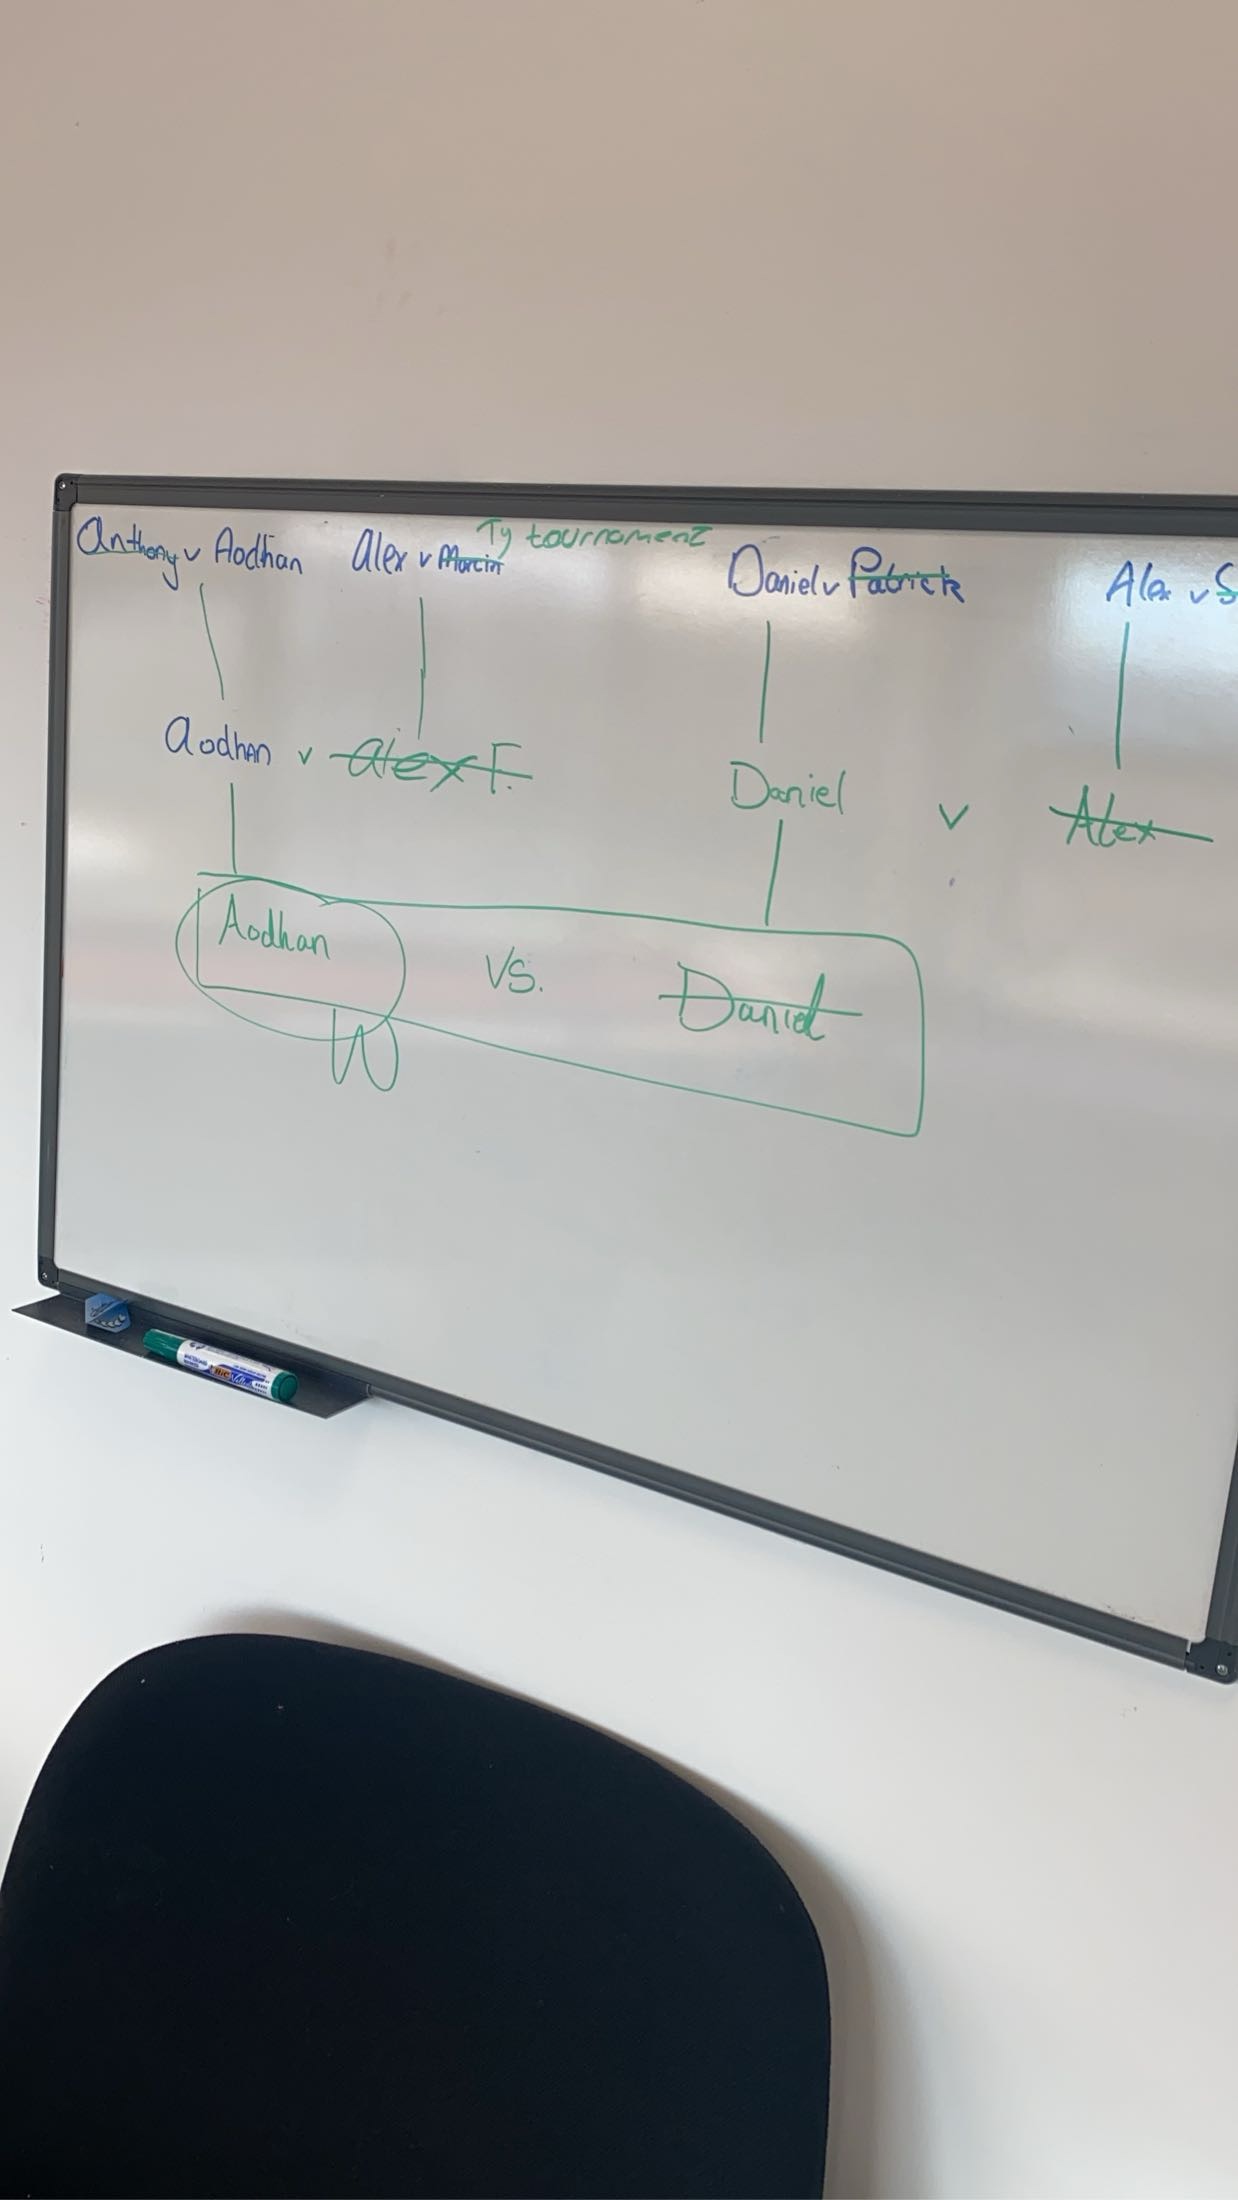 Ty tournament
Anthony v Aodhan Alex v Marcin Daniel v Patrick Alex v S
Aodhan v Alex F. Daniel v Alex
Aodhan vs. Daniel
W
BIC